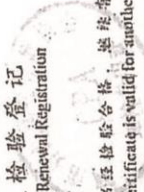 检验登记
Renewal Registration
证经检验合格，继续有
ertificate is valid for another